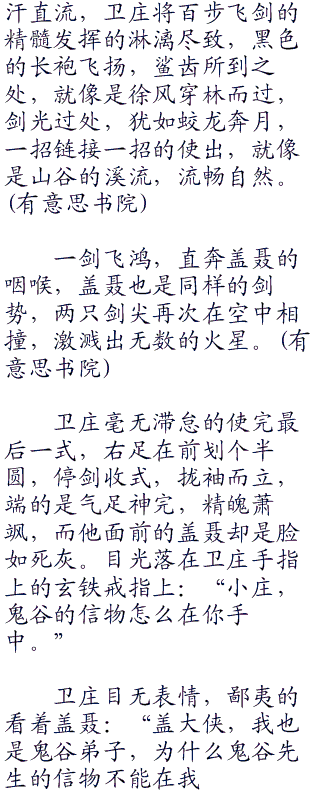 汗直流，卫庄将百步飞剑的
精髓发挥的淋漓尽致，黑色
的长袍飞扬，鲨齿所到之
处，就像是徐风穿林而过，
剑光过处，犹如蛟龙奔月，
一招链接一招的使出，就像
是山谷的溪流，流畅自然。
(有意思书院)
一剑飞鸿，直奔盖聂的
咽喉，盖聂也是同样的剑
势，两只剑尖再次在空中相
撞，激溅出无数的火星。(有
意思书院)
卫庄毫无滞怠的使完最
后一式，右足在前划个半
圆，停剑收式，拢袖而立，
端的是气足神完，精魄萧
飒，而他面前的盖聂却是脸
如死灰。目光落在卫庄手指
上的玄铁戒指上：“小庄，
鬼谷的信物怎么在你手
中。”
卫庄目无表情，鄙夷的
看着盖聂：“盖大侠，我也
是鬼谷弟子，为什么鬼谷先
生的信物不能在我